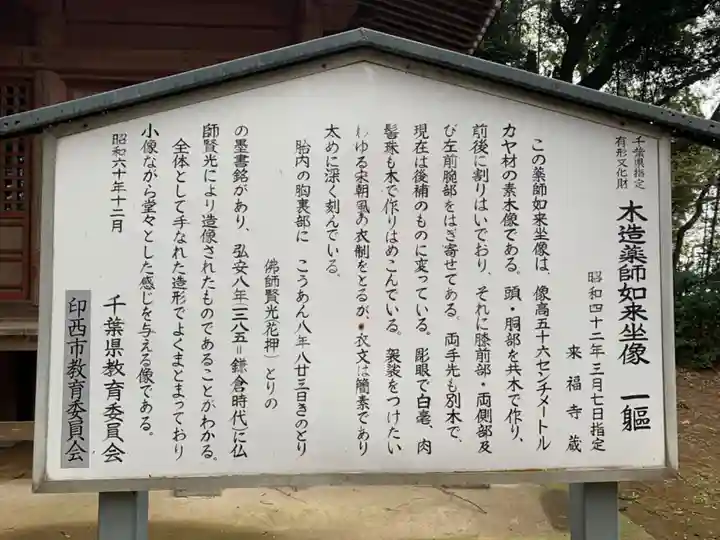 千葉県指定
有形文化財
木造薬師如来坐像 一軀
昭和四十二年三月七日指定
来福寺蔵
この薬師如来坐像は、像高五十六センチメートル
カヤ材の素木像である。頭・胴部を共木で作り、
前後に割りはいでおり、それに膝前部・両側部及
び左前腕部をはぎ寄せてある。両手先も別木で、
現在は後補のものに変っている。彫眼で白毫、肉
髻珠も木で作りはめこんでいる。袈裟をつけたい
わゆる宋朝風の衣制をとるが、衣文は簡素であり
太めに深く刻んでいる。
胎内の胸裏部に こうあん八年八廿三日きのとり
佛師賢光花押) とりの
の墨書銘があり、弘安八年(一二八五=鎌倉時代)に仏
師賢光により造像されたものであることがわかる。
全体として手なれた造形でよくまとまっており
小像ながら堂々とした感じを与える像である。
昭和六十年十二月
千葉県教育委員会
印西市教育委員会